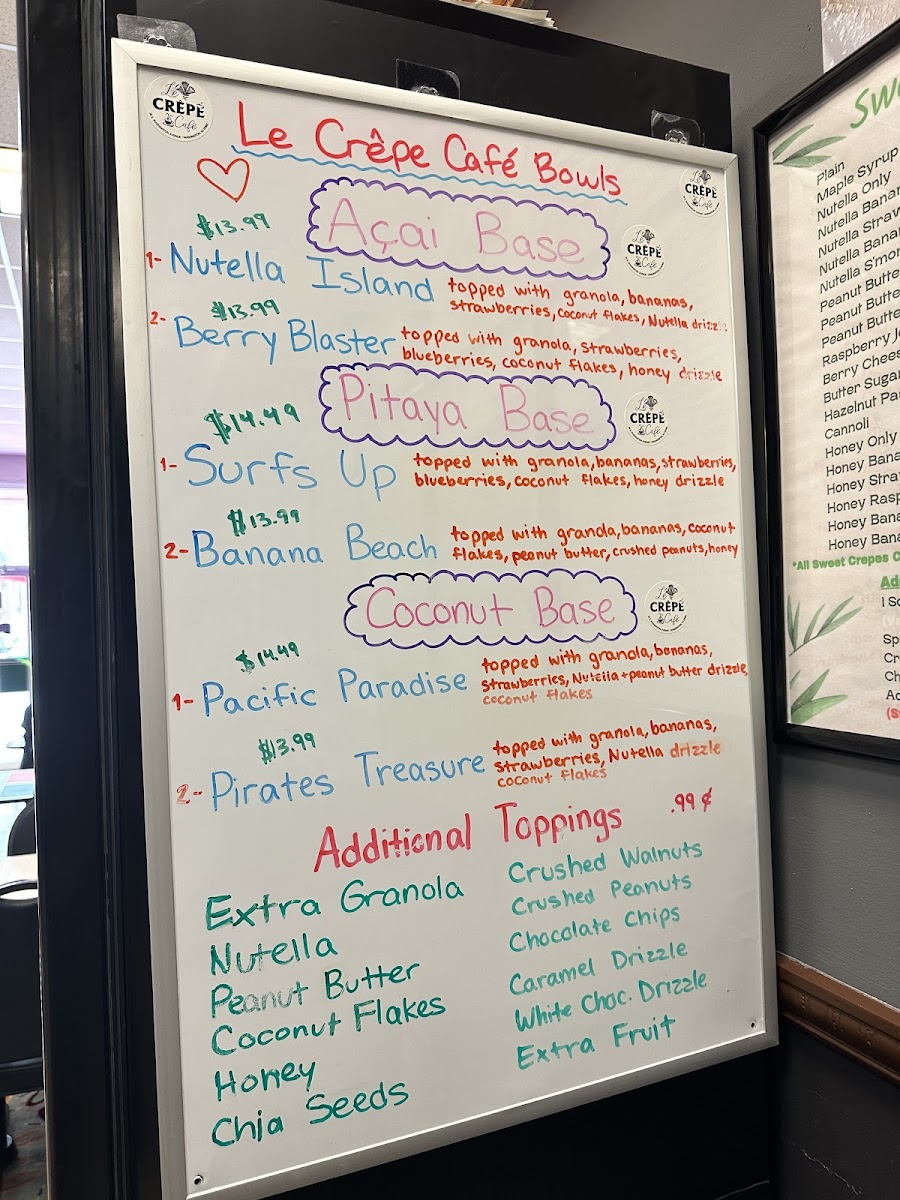 Le CRÊPE Café
Le Crêpe Café Bowls
Le CRÊPE Café
Açai Base
Le CRÊPE Café
$13.99
1- Nutella Island topped with granola, bananas,
strawberries, coconut flakes, Nutella drizzle
$13.99
2- Berry Blaster topped with granola, strawberries,
blueberries, coconut flakes, honey drizzle
Pitaya Base
Le CRÊPE Café
$14.49
1- Surfs Up topped with granola, bananas, strawberries,
blueberries, coconut flakes, honey drizzle
$13.99
2- Banana Beach topped with granola, bananas, coconut
flakes, peanut butter, crushed peanuts, honey
Coconut Base
Le CRÊPE Café
$14.49
1- Pacific Paradise topped with granola, bananas,
strawberries, Nutella + peanut butter drizzle,
coconut flakes
$13.99
2- Pirates Treasure topped with granola, bananas,
strawberries, Nutella drizzle
coconut flakes
Additional Toppings .99¢
Extra Granola
Nutella
Peanut Butter
Coconut Flakes
Honey
Chia Seeds
Crushed Walnuts
Crushed Peanuts
Chocolate Chips
Caramel Drizzle
White Choc. Drizzle
Extra Fruit
Plain
Maple Syrup
Nutella Only
Nutella
Nutella
Nutella
Nutella
Peanut
Peanut
Peanut
Raspberry
Berry
Butter Sugar
Hazelnut
Cannoli
Honey Only
Honey
Honey
Honey
Honey
Honey
*All Sweet Crepes